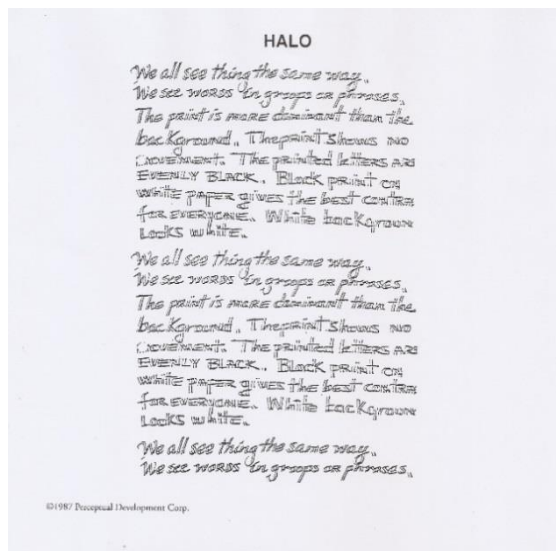 HALO
We all see thing the same way.
We see words in groops or phrases.
The print is more dominant than the
background. The print shows no
movement. The printed letters are
evenly black. Black print on
white paper gives the best contra
for everyone. White backgroun
Looks white.
We all see thing the same way.
We see words in groops or phrases.
The print is more dominant than the
background. The print shows no
movement. The printed letters are
evenly black. Black print on
white paper gives the best contra
for everyone. White backgroun
Looks white.
We all see thing the same way.
We see words in groops or phrases.
©1987 Perceptual Development Corp.